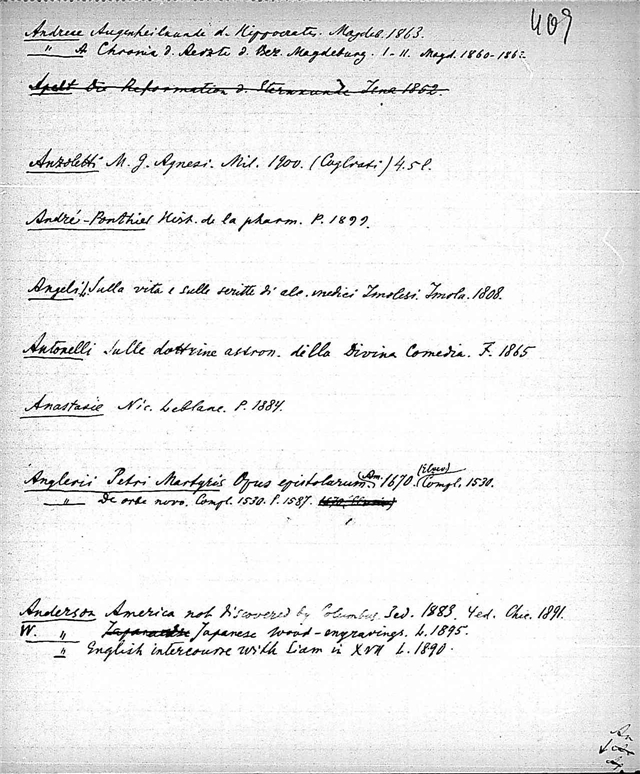 409
Andreae Augenheilkunde d. Hippocrates. Magdeb. 1863.
" A Chronik d. Aerzte d. Bez. Magdeburg. I-II. Magd. 1860-1862
Apelt Die Reformation d. Sternkunde Jena 1852.
Anzoletti M. G. Agnesi. Mil. 1900. (Cogliati) 4.5 l.
André-Ponthier Hist. de la pharm. P. 1899.
Angeli L. Sulla vita e sulle scritte di alc. medici Imolesi. Imola. 1808.
Antonelli Sulle dottrine astron. della Divina Comedia. F. 1865
Anastasie Nic. Leblanc. P. 1884.
Anglerii Petri Martyris Opus epistolarum. (Am. 1670. (Elzev) Compl. 1530.
" De orbe novo. Compl. 1530. P. 1587.
Anderson America not discovered by Columbus. 3ed. 1883. 4ed. Chic. 1891.
W. " Japanese wood-engravings. L. 1895.
" English intercourse with Siam in XVII L. 1890.
An